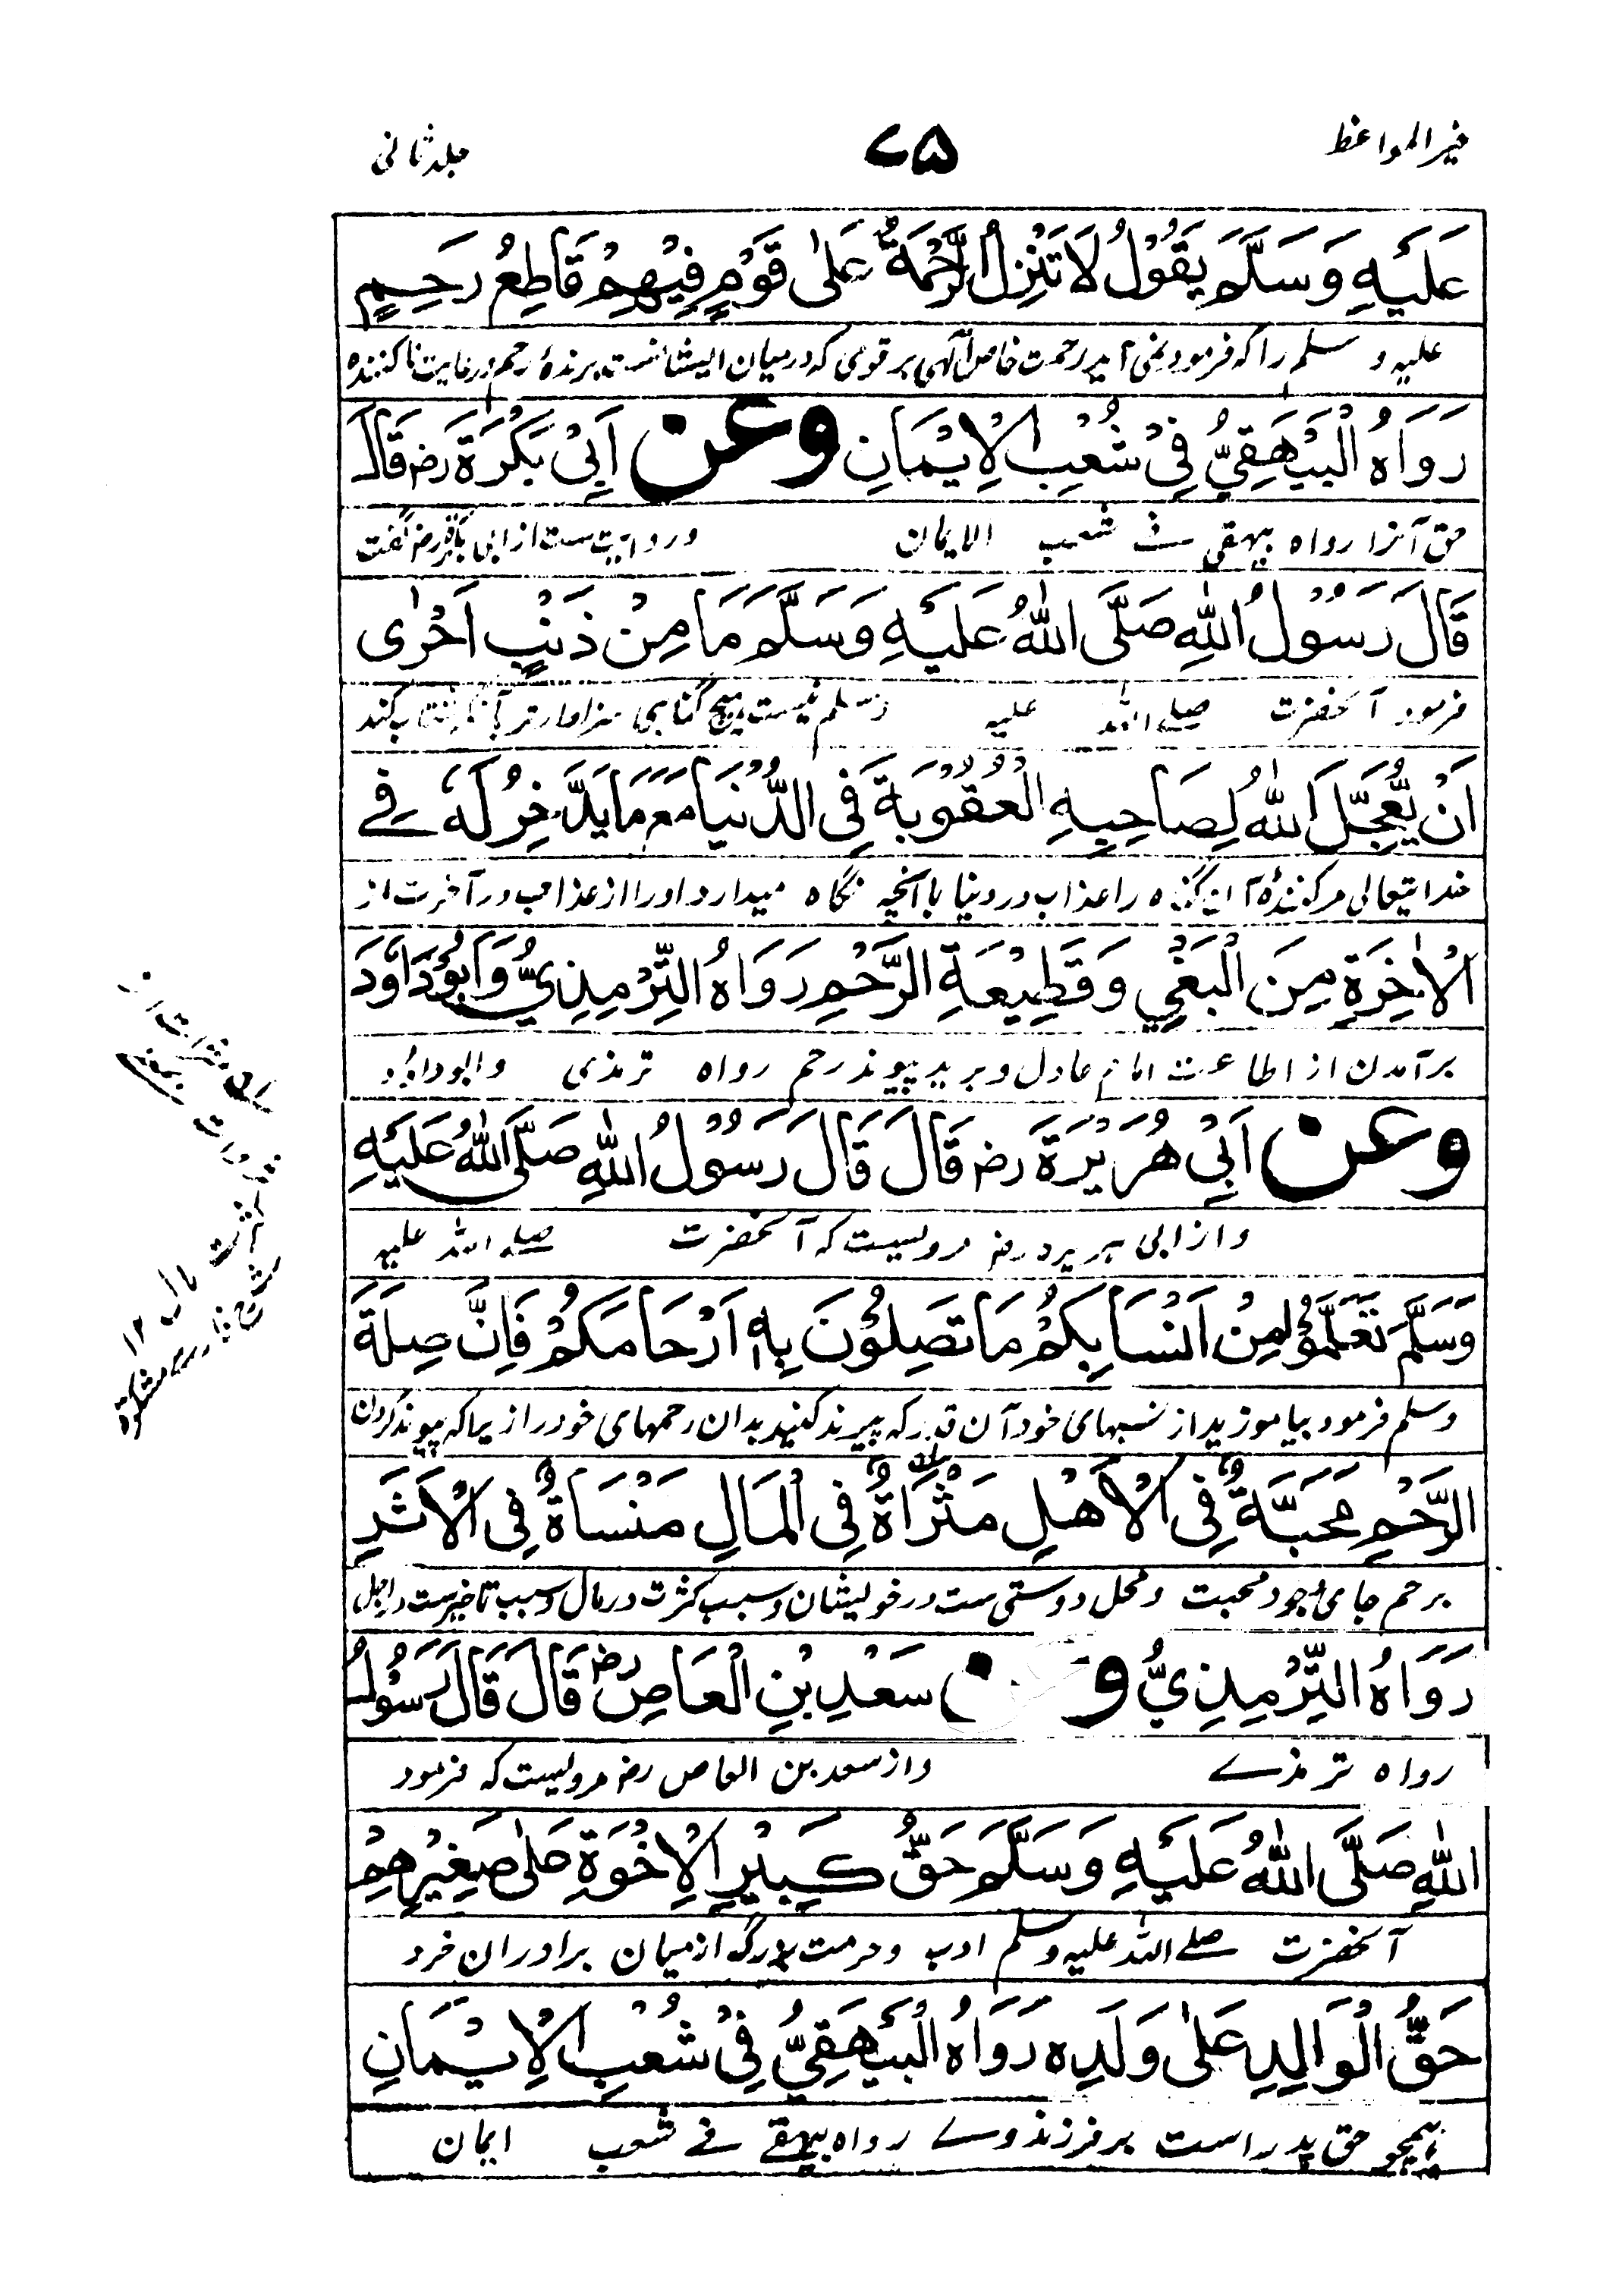 خیر المواعظ ۷۵ جلد ثانی
عَلَیْهِ وَسَلَّمَ یَقُوْلُ لَا تَنْزِلُ الرَّحْمَةُ عَلٰی قَوْمٍ فِیْهِمْ قَاطِعُ رَحِمٍ
علیه و سلم را که فرمود نمی آید رحمت خاص آلهی بر قومی که درمیان ایشانست برندهٔ رحم و رعایت ناکننده
رَوَاهُ الْبَیْهَقِیُّ فِیْ شُعَبِ الْاِیْمَانِ وعن اَبِیْ بَکْرَةَ رض قَالَ
حق آنرا رواه بیهقی فے شعب الایمان و روایت ست از ابی بکره رض گفت
قَالَ رَسُوْلُ اللّٰهِ صَلَّی اللّٰهُ عَلَیْهِ وَسَلَّمَ مَا مِنْ ذَنْبٍ اَحْرٰی
فرمود آنحضرت صلے الله علیه وسلم نیست هیچ گناهی سزاوارتر بآنکه شتاب کند
اَنْ یُّعَجِّلَ اللّٰهُ لِصَاحِبِهِ الْعُقُوْبَةَ فِی الدُّنْیَا مَعَ مَا یَدَّخِرُ لَهٗ فِے
خدایتعالی مرکنندهٔ آن گناه را عذاب در دنیا با آنچه نگاه میدارد او را از عذاب در آخرت از
الْاٰخِرَةِ مِنَ الْبَغْیِ وَقَطِیْعَةِ الرَّحْمِ رَوَاهُ التِّرْمِذِیُّ وَاَبُوْدَاوٗدَ
برآمدن از اطاعت امام عادل و برید پیوند رحم رواه ترمذی و ابوداؤد
وعن اَبِیْ هُرَیْرَةَ رض قَالَ قَالَ رَسُوْلُ اللّٰهِ صَلَّی اللّٰهُ عَلَیْهِ
و از ابی هریره رض مرویست که آنحضرت صلے الله علیه
وَسَلَّمَ تَعَلَّمُوْا مِنْ اَنْسَابِکُمْ مَا تَصِلُوْنَ بِهٖ اَرْحَامَکُمْ فَاِنَّ صِلَةَ
وسلم فرمود بیاموزید از نسبهای خود آن قدر که پیوند کنید بدان رحمهای خود را زیراکه پیوند کردن
الرَّحْمِ مَحَبَّةٌ فِی الْاَهْلِ مَثْرَاةٌ فِی الْمَالِ مَنْسَاةٌ فِی الْاَثَرِ
برحم جای وجود محبت و محل دوستی ست در خویشان و سبب کثرت در مال و سبب تاخیرست در اجل
رَوَاهُ التِّرْمِذِیُّ وعن سَعْدِ بْنِ الْعَاصِ رض قَالَ قَالَ رَسُوْلُ
رواه ترمذے و از سعد بن العاص رض مرویست که فرمود
اللّٰهِ صَلَّی اللّٰهُ عَلَیْهِ وَسَلَّمَ حَقُّ کَبِیْرِ الْاِخْوَةِ عَلٰی صَغِیْرِهِمْ
آنحضرت صلے الله علیه وسلم ادب و حرمت بزرگ از میان برادران خرد
حَقُّ الْوَالِدِ عَلٰی وَلَدِهٖ رَوَاهُ الْبَیْهَقِیُّ فِیْ شُعَبِ الْاِیْمَانِ
همچو حق پدر است بر فرزند وے رواه بیهقے فے شعب ایمان
کثرت مال ۱۲